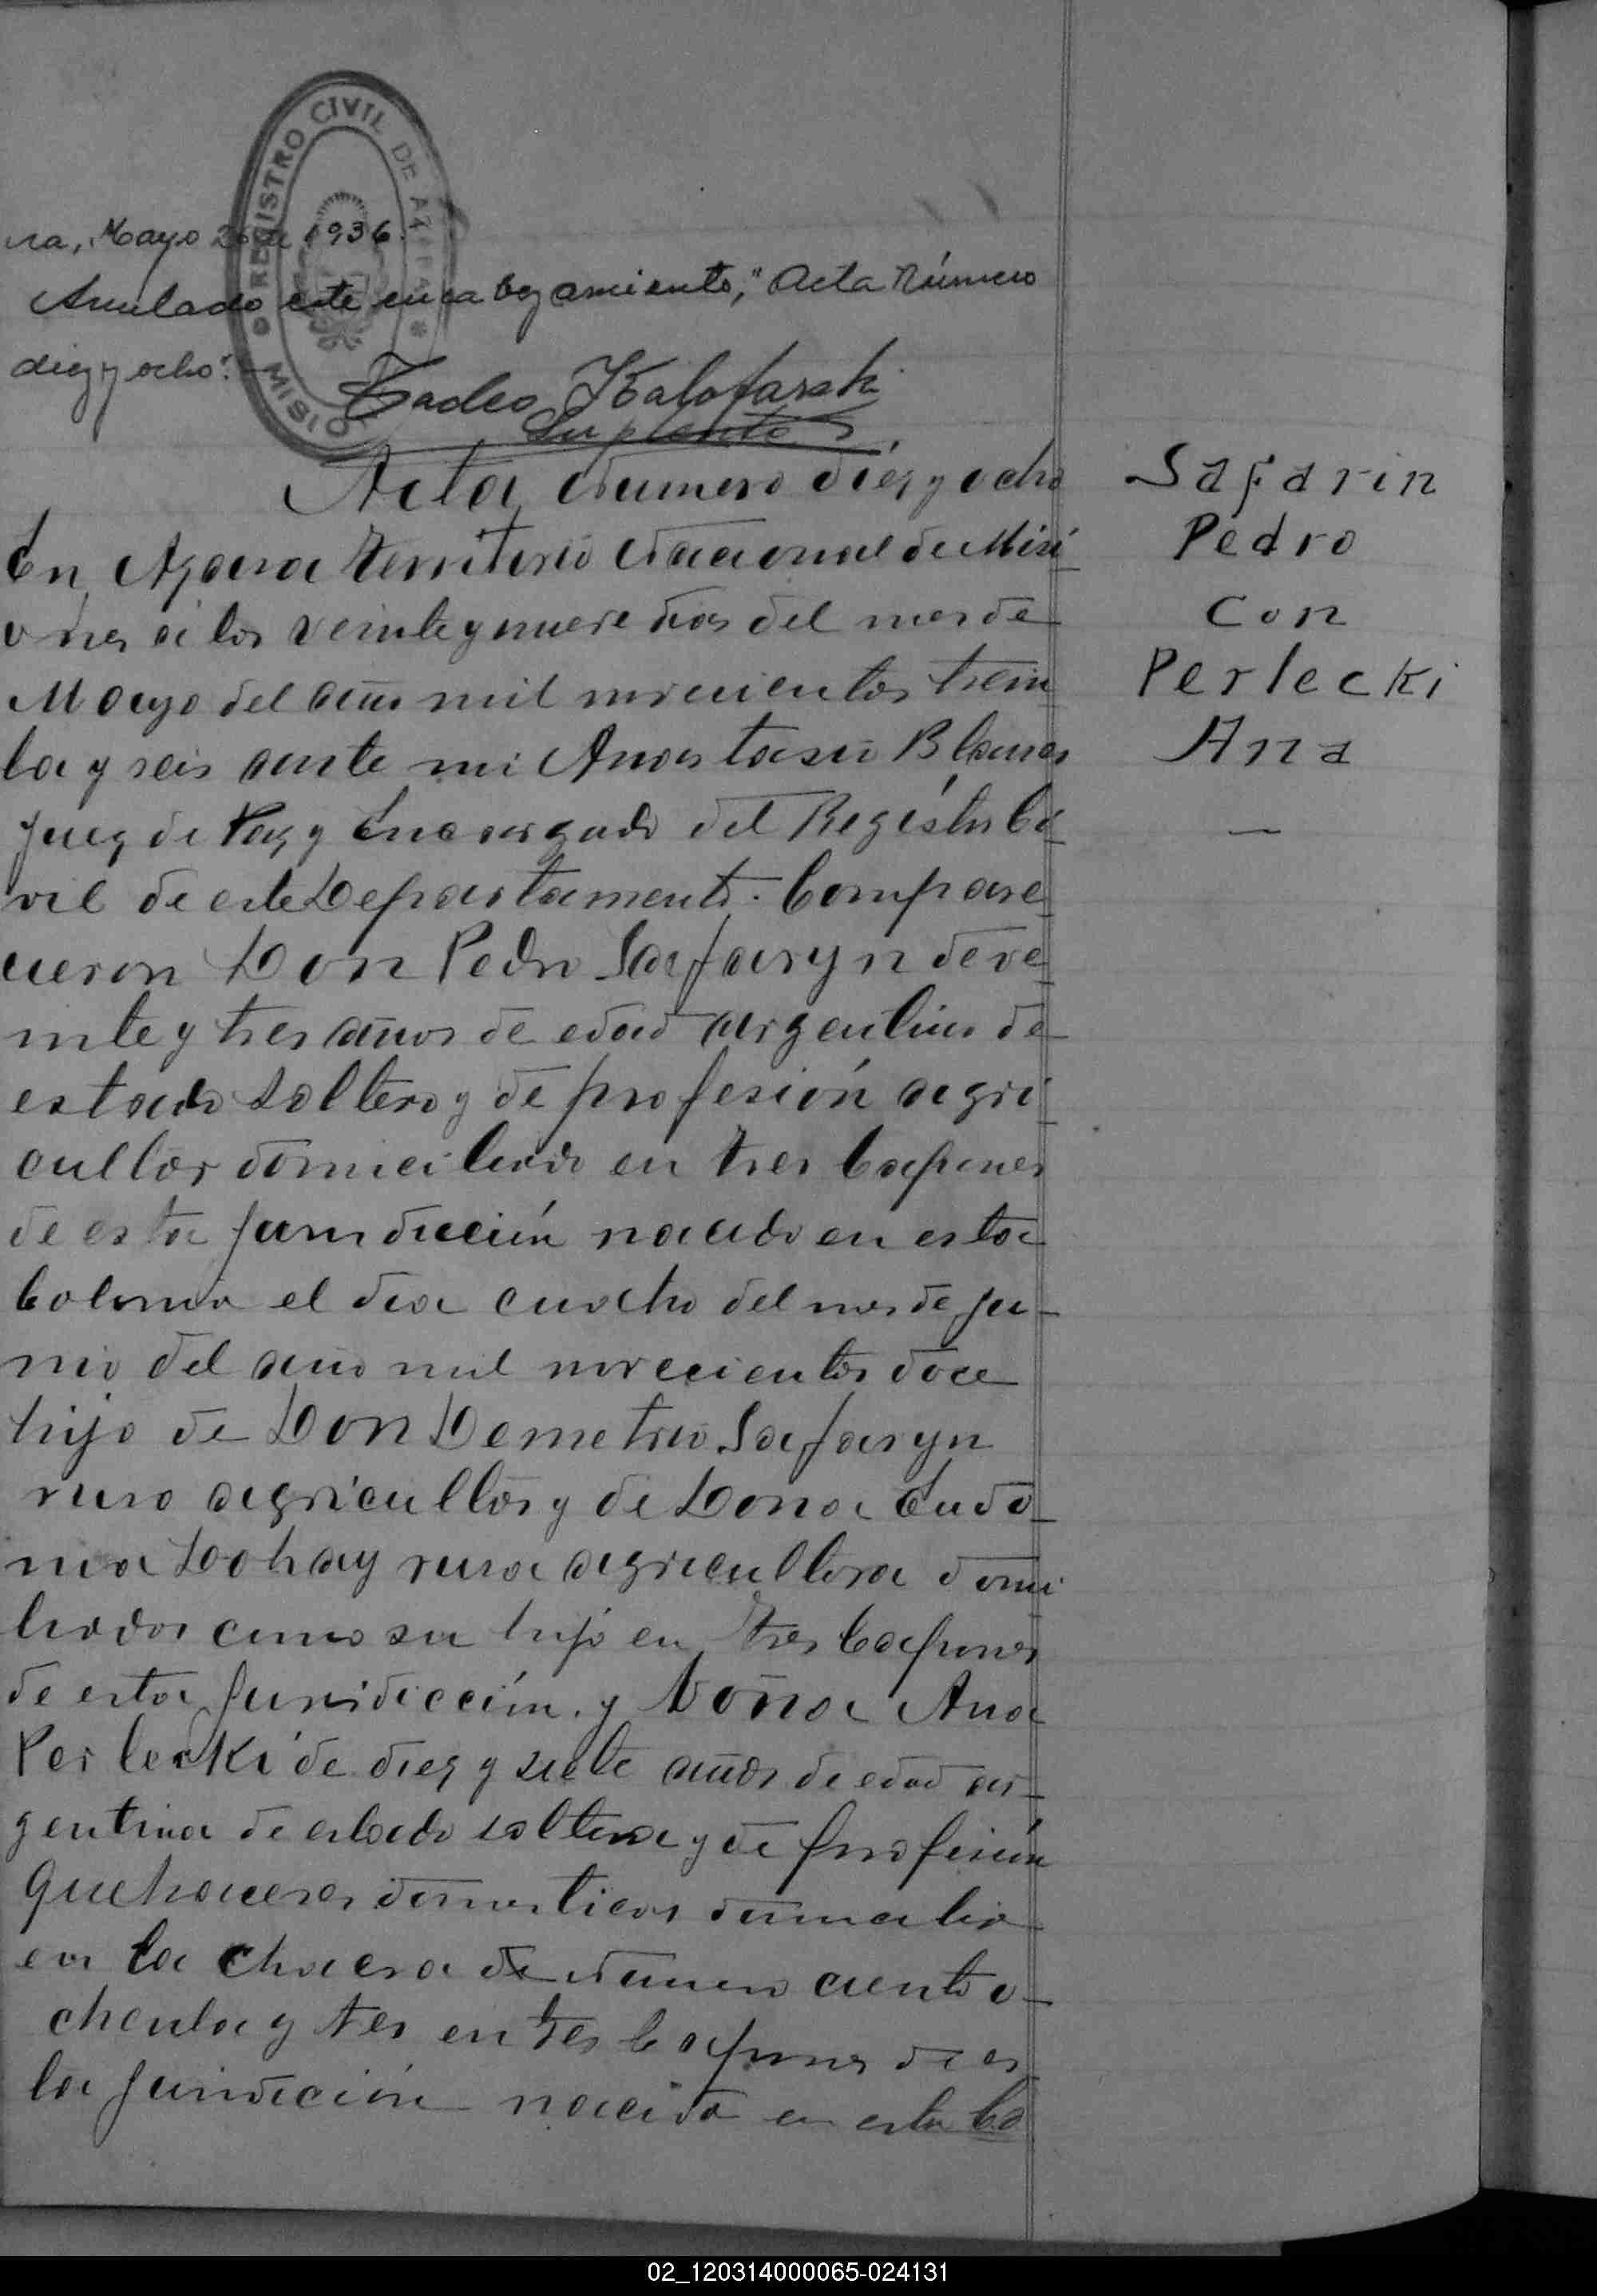 REGISTRO CIVIL DE AZARA * MISIO
ra, Mayo 26 de 1936.
Anulado este encabezamiento, "Acta Número
diez y ocho".-
Tadeo
Suplente
Acta Numero diez y ocho
En Azara Territorio Nacional de Misi
ones a los veinte y nueve dias del mes de
Mayo del año mil novecientos trein
ta y seis ante mi Anastasio Blanes
Juez de Paz y Encargado del Registro Ci
vil de este Departamento. Compare
cieron Don Pedro Safaryn de ve
inte y tres años de edad argentino de
estado soltero y de profesión agri
cultor domiciliado en tres Capones
de esta Jurisdicción nacido en esta
Colonia el dia cuatro del mes de Ju-
nio del año mil novecientos doce
hijo de Don Demetrio Safaryn
ruso agricultor y de Dona Eudo
nia Dohay rusa agricultora domi
liados como su hijo en tres Capones
de esta Jurisdicción. y Doña Ana
Perlecki de diez y siete años de edad ar-
gentina de estado soltera y de profesión
Quehaceres domesticos
en la chacra de Numero ciento o-
chenta y tres en tres Capones de es
ta Juridición nacida en esta Co
Safarin
Pedro
Con
Perlecki
Ana
—
02_120314000065-024131